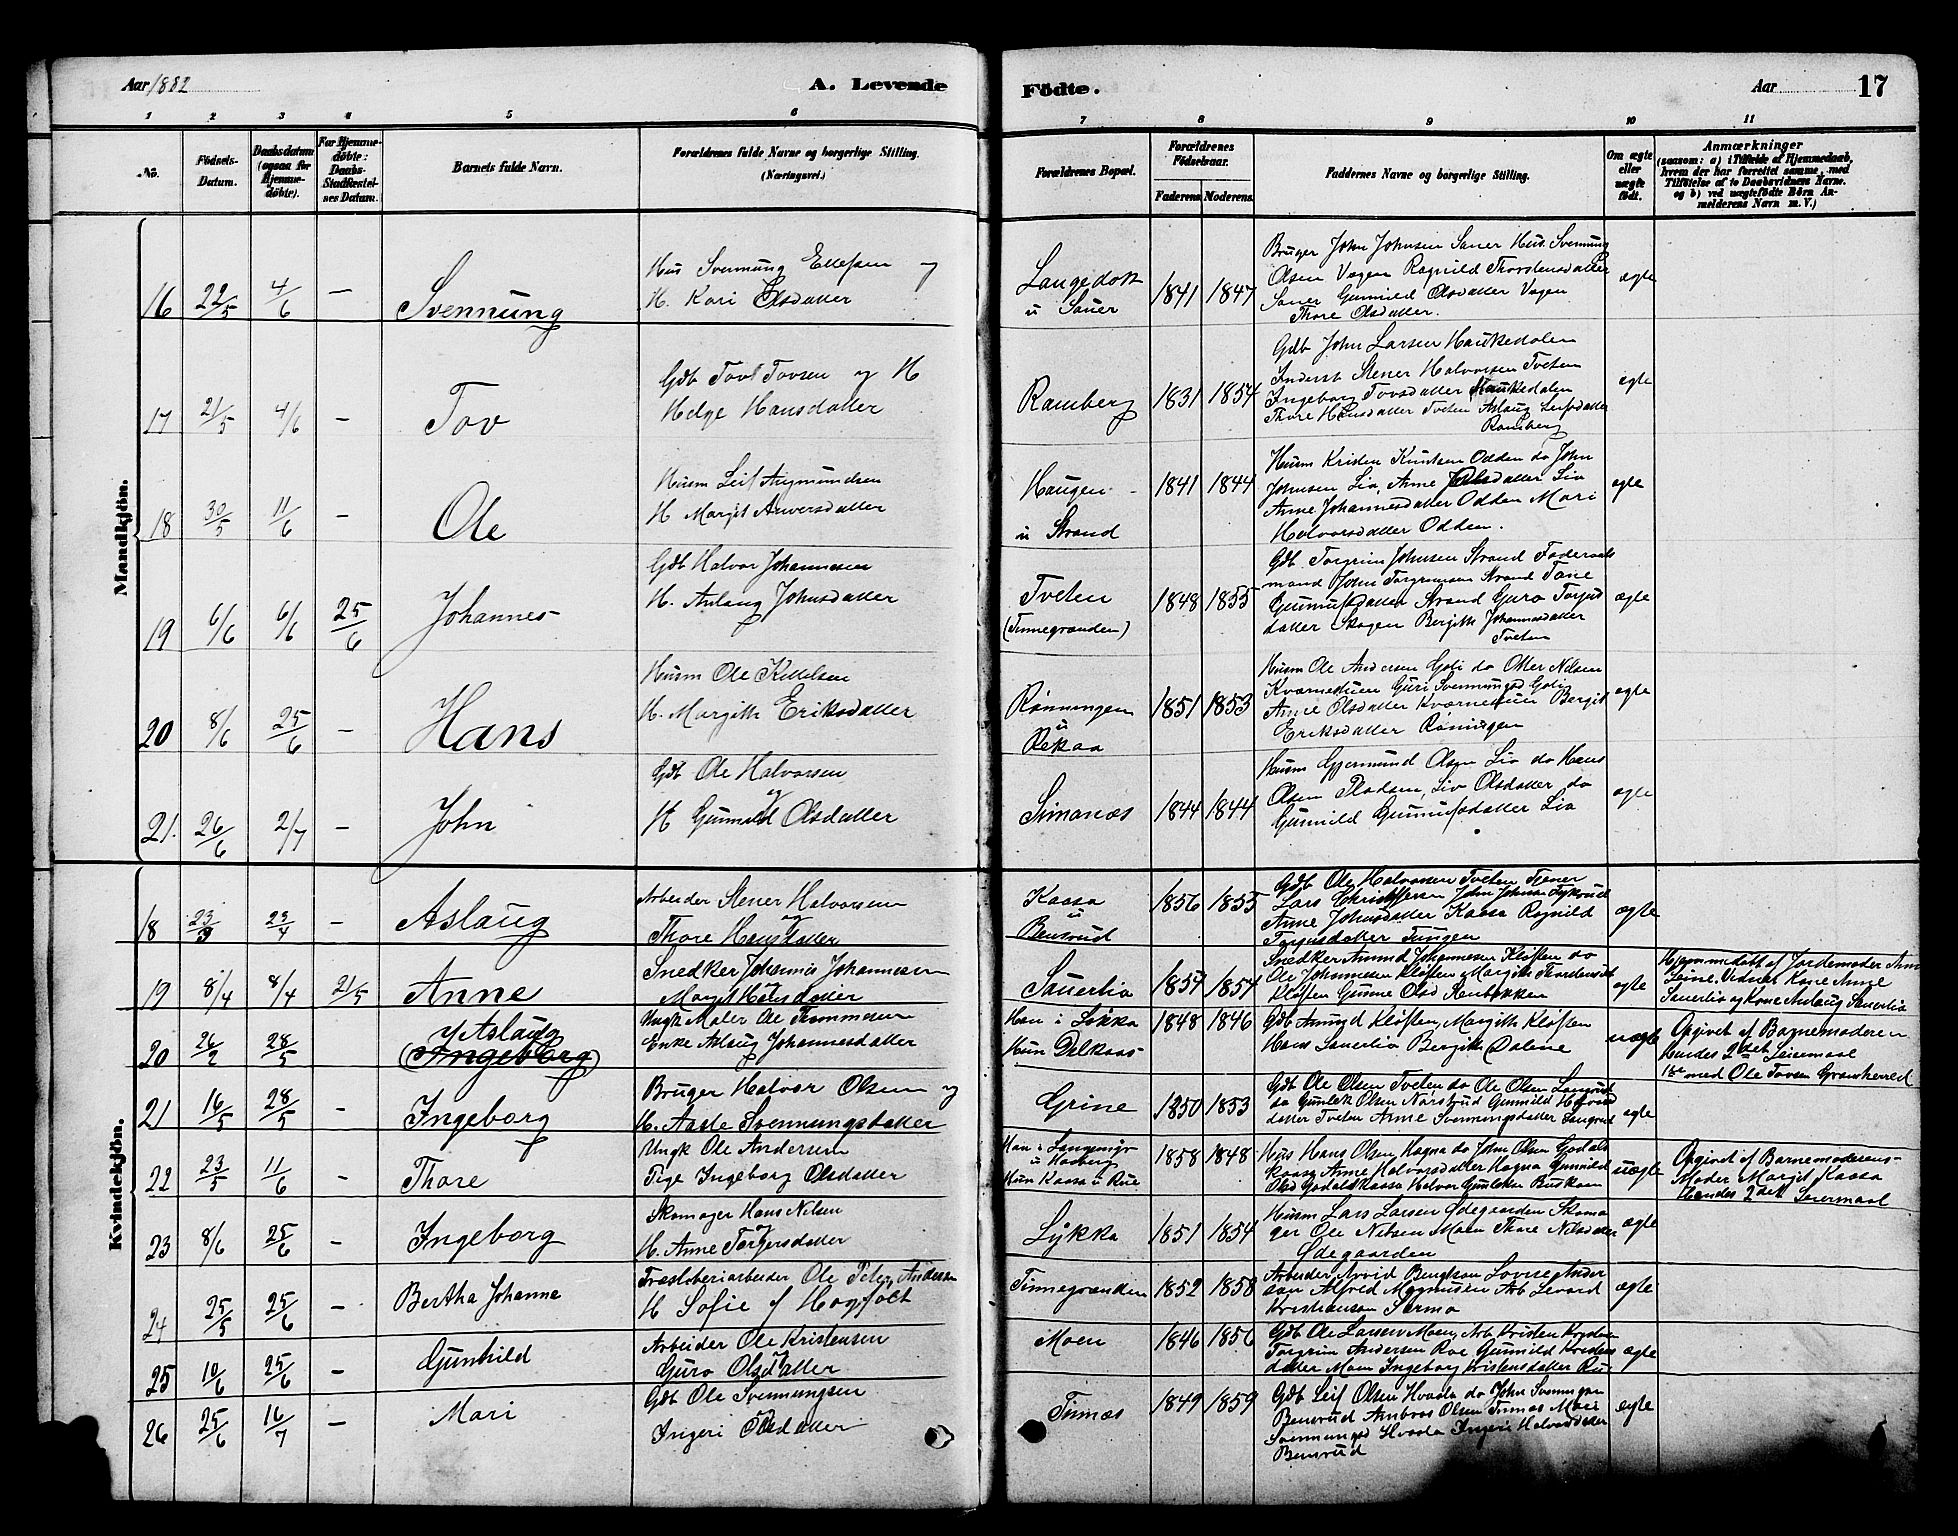 Aar 1882
A. Levende
Fødte.
Aar
17
1 2 3 4 5 6 7 8 9 10 11
No.
Fødsels-Datum.
Daabsdatum (ogsaa for Hjemmedøbte).
For Hjemmedøbte: Daabs-Stadfæstelsens Datum.
Barnets fulde Navn.
Forældrenes fulde Navne og borgerlige Stilling. (Næringsvei.)
Forældrenes Bopæl.
Forældrenes Fødselsaar.
Faderens. Moderens.
Faddernes Navne og borgerlige Stilling.
Om ægte eller uægte født.
Anmærkninger
(saasom: a) i Tilfælde af Hjemmedaab, hvem der har forrettet samme, med Tilføielse af to Daabsvidners Navne. og b) ved uægtefødte Børn Anmelderens Navn m. V.)
Mandkjøn.
16 22/5 4/6 — Svennung
Hus Svennung Ellefsen og
H. Kari Olsdatter
Langedok
u Sauer
1841 1847
Bruger John Johnsen Sauer Hus. Svennung
Olsen Vaagen Ragnild Thorstensdatter
Sauer Gunnild Olsdatter Vagen
Thore Olsdatter.
ægte
17 21/5 4/6 - Tov
Gdb Tovl Tovsen og H
Helge Hansdatter
Ramberg
1831 1854
Gdb John Larsen Haukedalen
Inderst Stener Halvorsen Tveten
Ingeborg Tovsdatter Haukedalen
Thore Hansdatter Tveten Aslaug Leifsdatter
Ramberg
ægte
18 30/5 11/6 - Ole
Husm Leif Angmundsen
H Margit Anversdatter
Haugen -
u Strand
1841 1844
Husm Kristen Knutsen Odden do John
Johnsen Lia, Anne Olsdatter Lia
Anne Johannesdatter Odden Mari
Halvorsdatter Odden.
ægte
19 6/6 6/6 25/6 Johannes
Gdb Halvor Johannesen
H. Aslaug Johnsdatter
Tveten
(Tinnegranden)
1848 1855
Gdb. Torgrim Johnsen Strand Foderaads
mand John Torgrimsen Strand Tone
Gunnulfsdatter Strand Guro Torjus
datter Skogen Bergith Johannesdatter
Tveten
ægte
20 8/6 25/6 - Hans
Husm Ole Kittelsen
H. Margith Eriksdatter
Rønningen
u
Rekaa
1851 1853
Husm Ole Andersen Goli do Otter Nilsen
Kværnestuen Guri Svennungsd Goli
Anne Olsdatter Kværnestuen Bergit
Eriksdatter Rønningen
ægte
21. 26/6 2/7 - John
Gdb Ole Halvorsen
og
H Gunnild Olsdatter
Simonæs
1844 1844
Husm Gjermund Olsen Lio do Hans
Olsen Pladsen, Liv Olsdatter do
Gunnild Gunnulfsdatter Lia
ægte
Kvindekjøn.
18 23/3 23/4 - Aslaug
Arbeider Stener Halvorsen
og
Thore Hansdatter
Kaasa
u
Bensrud
1856 1855
Gdb Ole Halvorsen Tveten Tjener
Lars Christoffersen John Johnsen
Anne Johnsdatter Kaasa Ragnild
Torjusdatter Tungen
ægte
19 8/4 8/4 21/5 Anne
Snedker Johannes Johannesen
Margit Hansdatter
Sauerlia
1857 1854
Snedker Amund Johannesen Kløften do
Ole Johannesen Kløften Margith Thordensdt
Kløften Gunne Olsd Renbakken
ægte
Hjemmedøbt af Jordemoder Anne
Leine. Vidner Kone Anne
Sauerlia og Kone Aslaug Sauerlia
20 26/2 28/5 Aslaug
(Ingeborg)
Ungk Maler Ole Thommesen
Enke Aslaug Johannesdatter
Han i Løkka
Hun Dalkaas
1848 1846
Gdb Amund Kløften, Margith Kløften
Hans Sauerlia Bergith Dalene
uægte
Opgivet af Barnemoderen
Hendes 2det Leiermaal
1ste med Ole Tovsen Gransherred
21 16/5 28/5 - Ingeborg
Bruger Halvor Olsen og
H. Aaste Svennungsdatter
Grine
1850 1853
Gdb Ole Olsen Tveten do Ole Olsen Langrud
do Gunlek Olsen Nørstrud Gunnild Halvors
datter Tveten Anne Svennungsdatter Langrud
ægte
22 23/5 11/6 - Thore
Ungk Ole Andersen
Pige Ingeborg Olsdatter
Han i Langemyr
u Haaberg
Hun Kaasa u Rue
1858 1848
Hus Hans Olsen Hagna do John Olsen Godals
kaasa Anne Halvorsdatter Hagna Gunnild
Olsd Godalskaasa Halvor Gunleksen Buskaasen
uægte
Opgivet af Barnemoderens
Moder Margit Kaasa
Hendes 2det Leiermaal
23 8/6 25/6 Ingeborg
Skomager Hans Nilsen
og
H. Anne Torgersdatter
Løkka
1851 1854
Husm Lars Larsen Ødegaarden Skoma
ger Ole Nilsen Moen Thore Nilsdatter
Ødegaarden
ægte
24 25/5 25/6 - Bertha Johanne
Træsliberiarbeider Ole Peter Andersen
H Sofie f Hagfolt
Tinnegranden
1852 1858
Arbeider Arvid Bengtson Lovise Ander
son Alfred Magnusen Arb Levard
Kristianson Sarma
ægte
25 10/6 25/6 - Gunhild
Arbeider Ole Kristensen
og
Guro Olsdatter
Moen
1846 1856
Gdb Ole Larsen Moen, Arb Kristen
Torgrim Andersen Rue Gunnild Kristens
datter Moen Ingeborg Kristensdatter Rue
ægte
26 25/6 16/7 - Mari
Gdb Ole Svennungsen
og
Ingeri Olsdatter
Tinnæs
1849 1859
Gdb Leif Olsen Hvaala do John Svennungsen
Bensrud Ambros Olsen Tinnæs Mari
Svennungsd Hvaala Ingeri Halvorsdatter
Bensrud
ægte